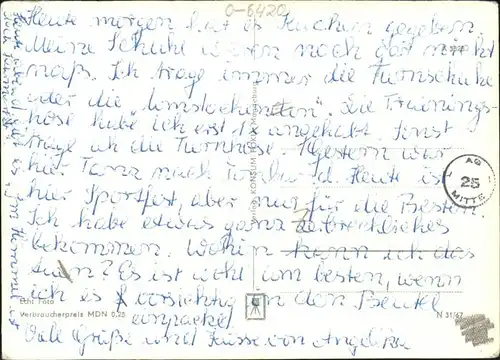 O-6420
Heute morgen hat es Kuchen gegeben.
Meine Schuhe waren noch gar nicht
naß. Ich trage immer die Turnschuhe
oder die "Umstochenden". Die Trainings-
hose habe ich erst 1x angehabt. Sonst
trage ich die Turnhose. Gestern war
hier Tanz nach Tonband. Heute ist
hier Sportfest, aber nur für die Besten.
Ich habe etwas ganz Zerbrechliches
bekommen. Wohin kann ich das
tuen? Es ist wohl am besten, wenn
ich es vorsichtig in den Beutel
einpacke!
Viele Grüße und Küsse von Angelika
Echt Foto
Verbraucherpreis MDN 0,25
N 31/67
AG
25
MITTE